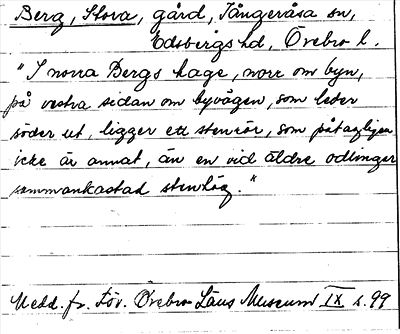 Berg, Stora, gård, Tångeråsa sn,
Edsbergs hd, Örebro l.
"I norra Bergs hage, norr om byn,
på vestra sidan om byvägen, som leder
söder ut, ligger ett stenrör, som påtagligen
icke är annat, än en vid äldre odlingar
sammankastad stenhög."
Medd. fr. För. Örebro Läns Museum IX s. 99